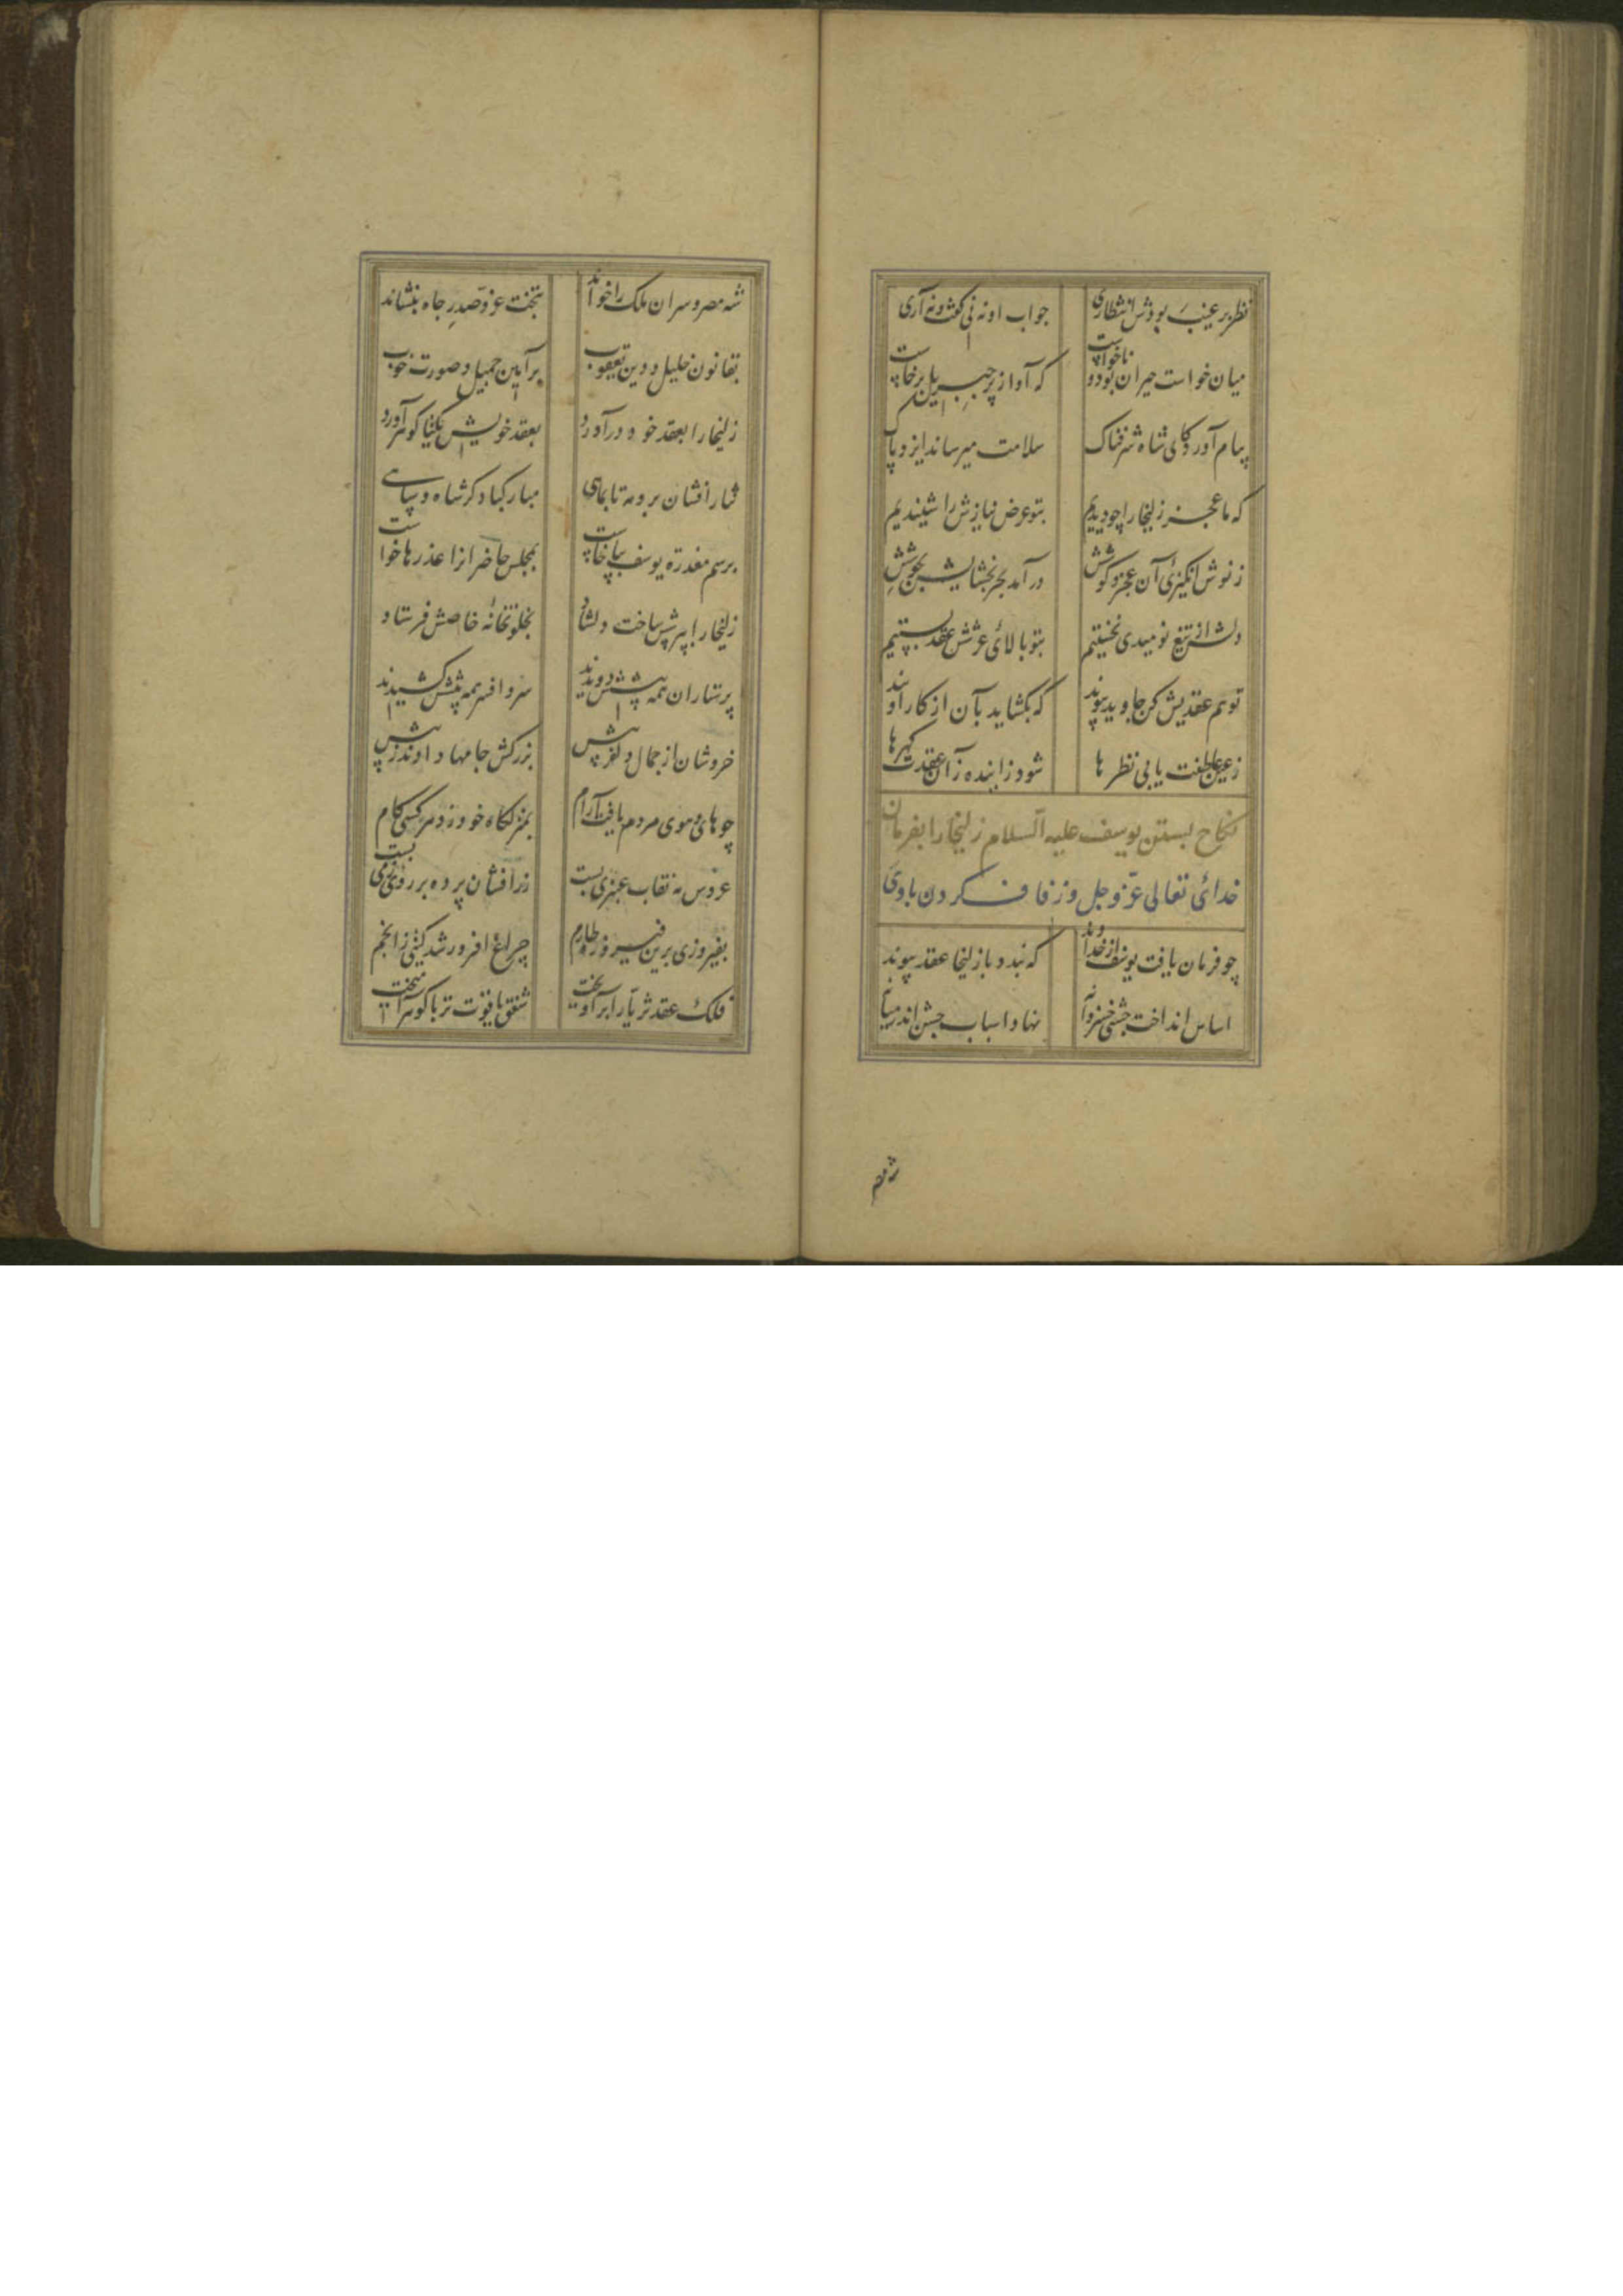 نظر بر غیب بودش انتظاری جواب او نه نی گفت و نه آری
میان خواست حیران بود و ناخواست که آواز پر جبریل برخاست
پیام آورد کای شاه شرفناک سلامت میرساند ایزد پاک
که ما عجز زلیخا را چو دیدیم بتو عرض نیازش را شنیدیم
ز نوش انگیزئ آن عجز و کوشش در آمد بحر بخشایش بجوشش
دلش از تیغ نومیدی نخستیم بتو بالای عرشش عقد بستیم
تو هم عقدیش کن جاوید پیوند که بگشاید بآن از کار او بند
ز عین عاطفت یابی نظرها شود زاینده زآن عقدت گهرها
نکاح بستن یوسف علیه السلام زلیخا را بفرمان
خدائی تعالی عز و جل و زفاف کردن با وی
چو فرمان یافت یوسف از خداوند که بندد با زلیخا عقد پیوند
اساس انداخت جشنی خسروانه نهاد اسباب جشن اندر میانه
شه مصر
شه مصر و سران ملک را خواند بتخت عز و صدر جاه بنشاند
بقانون خلیل و دین یعقوب بر آیین جمیل و صورت خوب
زلیخا را بعقد خود در آورد بعقد خویش یکتا گوهر آورد
نثار افشان برو مه تا بماهی مبارکباد گر شاه و سپاهی
برسم معذرة یوسف بپا خاست بمجلس حاضرانرا عذرها خواست
زلیخا را بپرسش ساخت دلشاد بخلوتخانهٔ خاصش فرستاد
پرستاران همه پیشش دویدند سر و افسر همه پیشش کشیدند
خروشان از جمال دلفریبش بزرکش جامها دادند زیبش
چو های و هوی مردم یافت آرام بمنزلگاه خود زد هر کسی گام
عروس مه نقاب عنبری بست زر افشان پرده بر روی زمی بست
بفیروزی برین فیروزه طارم چراغ افروز شد گیتی ز انجم
فلک عقد ثریا را بر آویخت شفق یاقوت تر با گوهر آمیخت